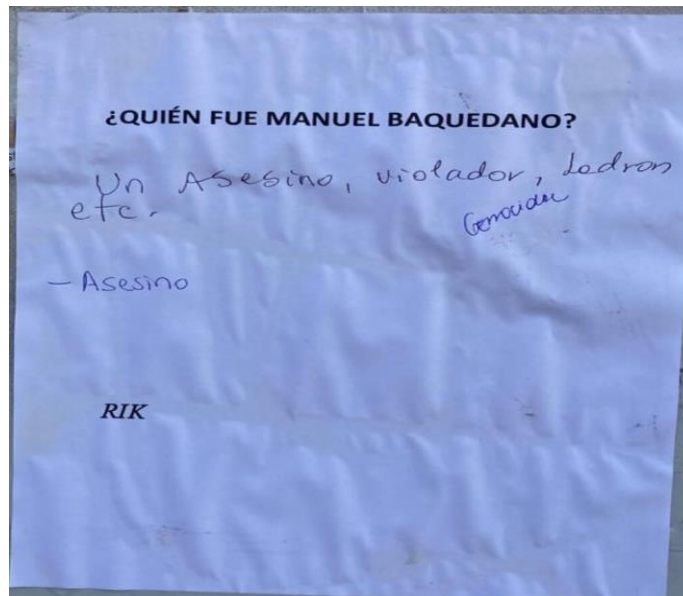 ¿QUIÉN FUE MANUEL BAQUEDANO?
Un Asesino, violador, Ladron
etc.
Genocida
- Asesino
RIK